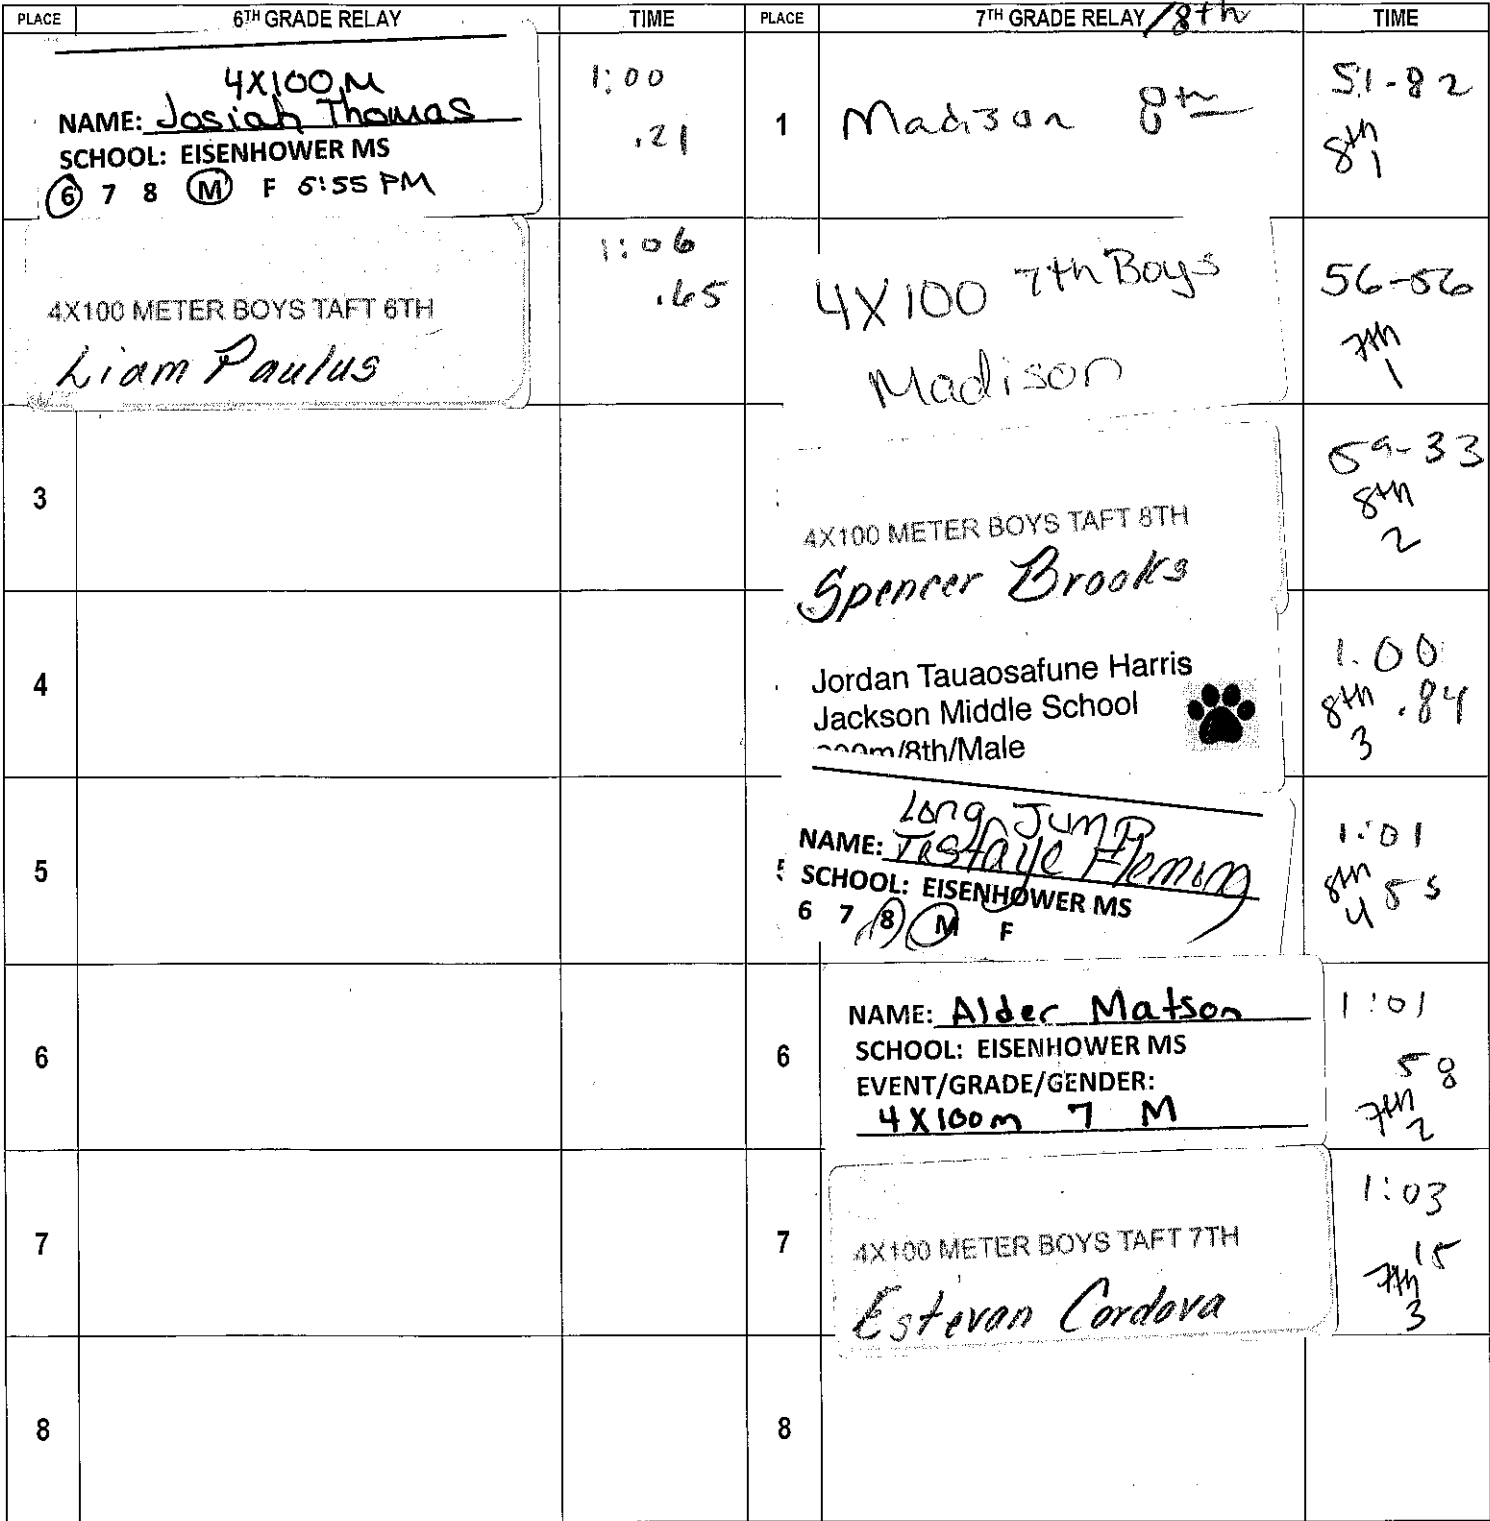 PLACE 6TH GRADE RELAY TIME PLACE 7TH GRADE RELAY /8th TIME
4X100 M
NAME: Josiah Thomas
SCHOOL: EISENHOWER MS
6 7 8 M F 5:55 PM
1:00
.21
4X100 METER BOYS TAFT 6TH
Liam Paulus
1:06
.65
3
4
5
6
7
8
1
Madison 8th
51-82
8th
1
4X100 7th Boys
Madison
56-56
7th
1
4X100 METER BOYS TAFT 8TH
Spencer Brooks
59-33
8th
2
Jordan Tauaosafune Harris
Jackson Middle School
m/8th/Male
1.00
8th .84
3
5
Long Jump
NAME: Tesfaye Fleming
SCHOOL: EISENHOWER MS
6 7 8 M F
1:01
8th 55
4
6
NAME: Alder Matson
SCHOOL: EISENHOWER MS
EVENT/GRADE/GENDER:
4X100m 7 M
1:01
58
7th
2
7
4X100 METER BOYS TAFT 7TH
Estevan Cordova
1:03
15
7th
3
8